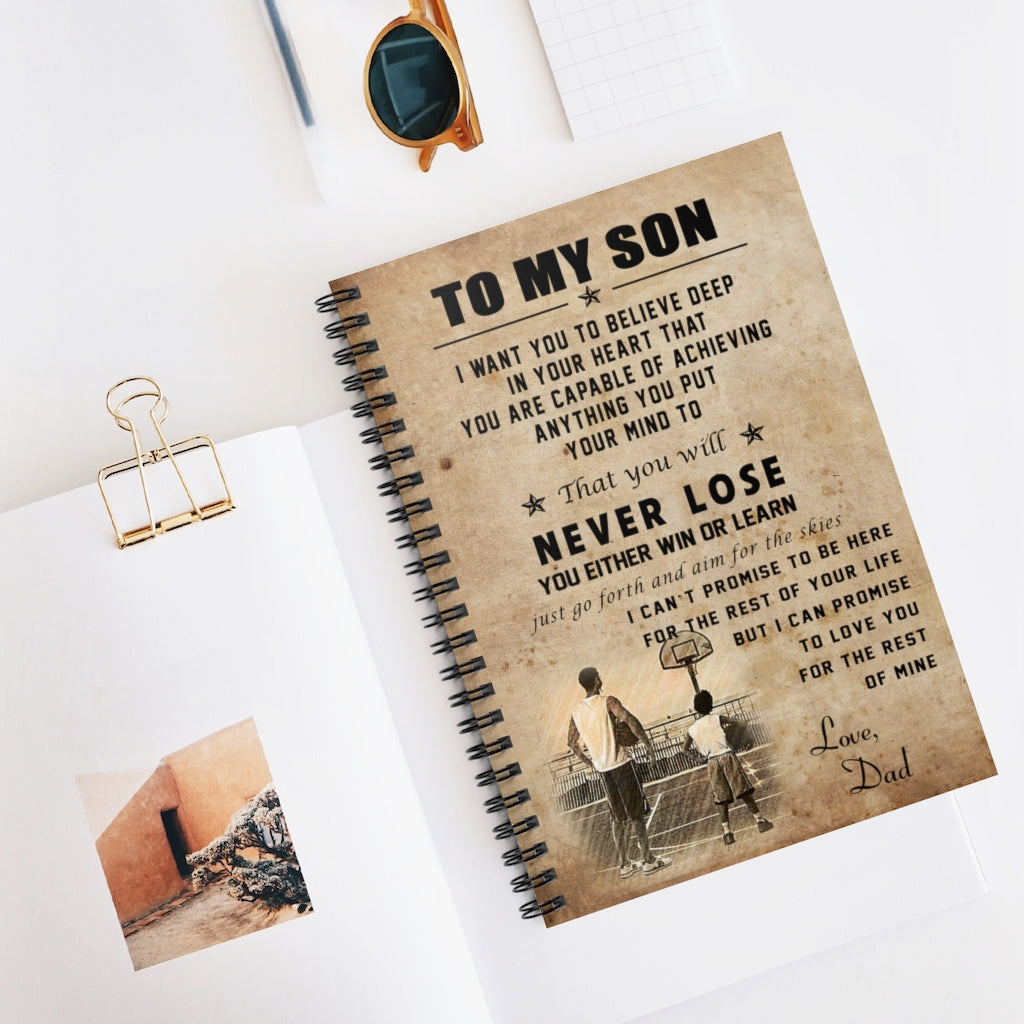 TO MY SON
I WANT YOU TO BELIEVE DEEP
IN YOUR HEART THAT
YOU ARE CAPABLE OF ACHIEVING
ANYTHING YOU PUT
YOUR MIND TO
That you will
NEVER LOSE
YOU EITHER WIN OR LEARN
just go forth and aim for the skies
I CAN'T PROMISE TO BE HERE
FOR THE REST OF YOUR LIFE
BUT I CAN PROMISE
TO LOVE YOU
FOR THE REST
OF MINE
Love,
Dad